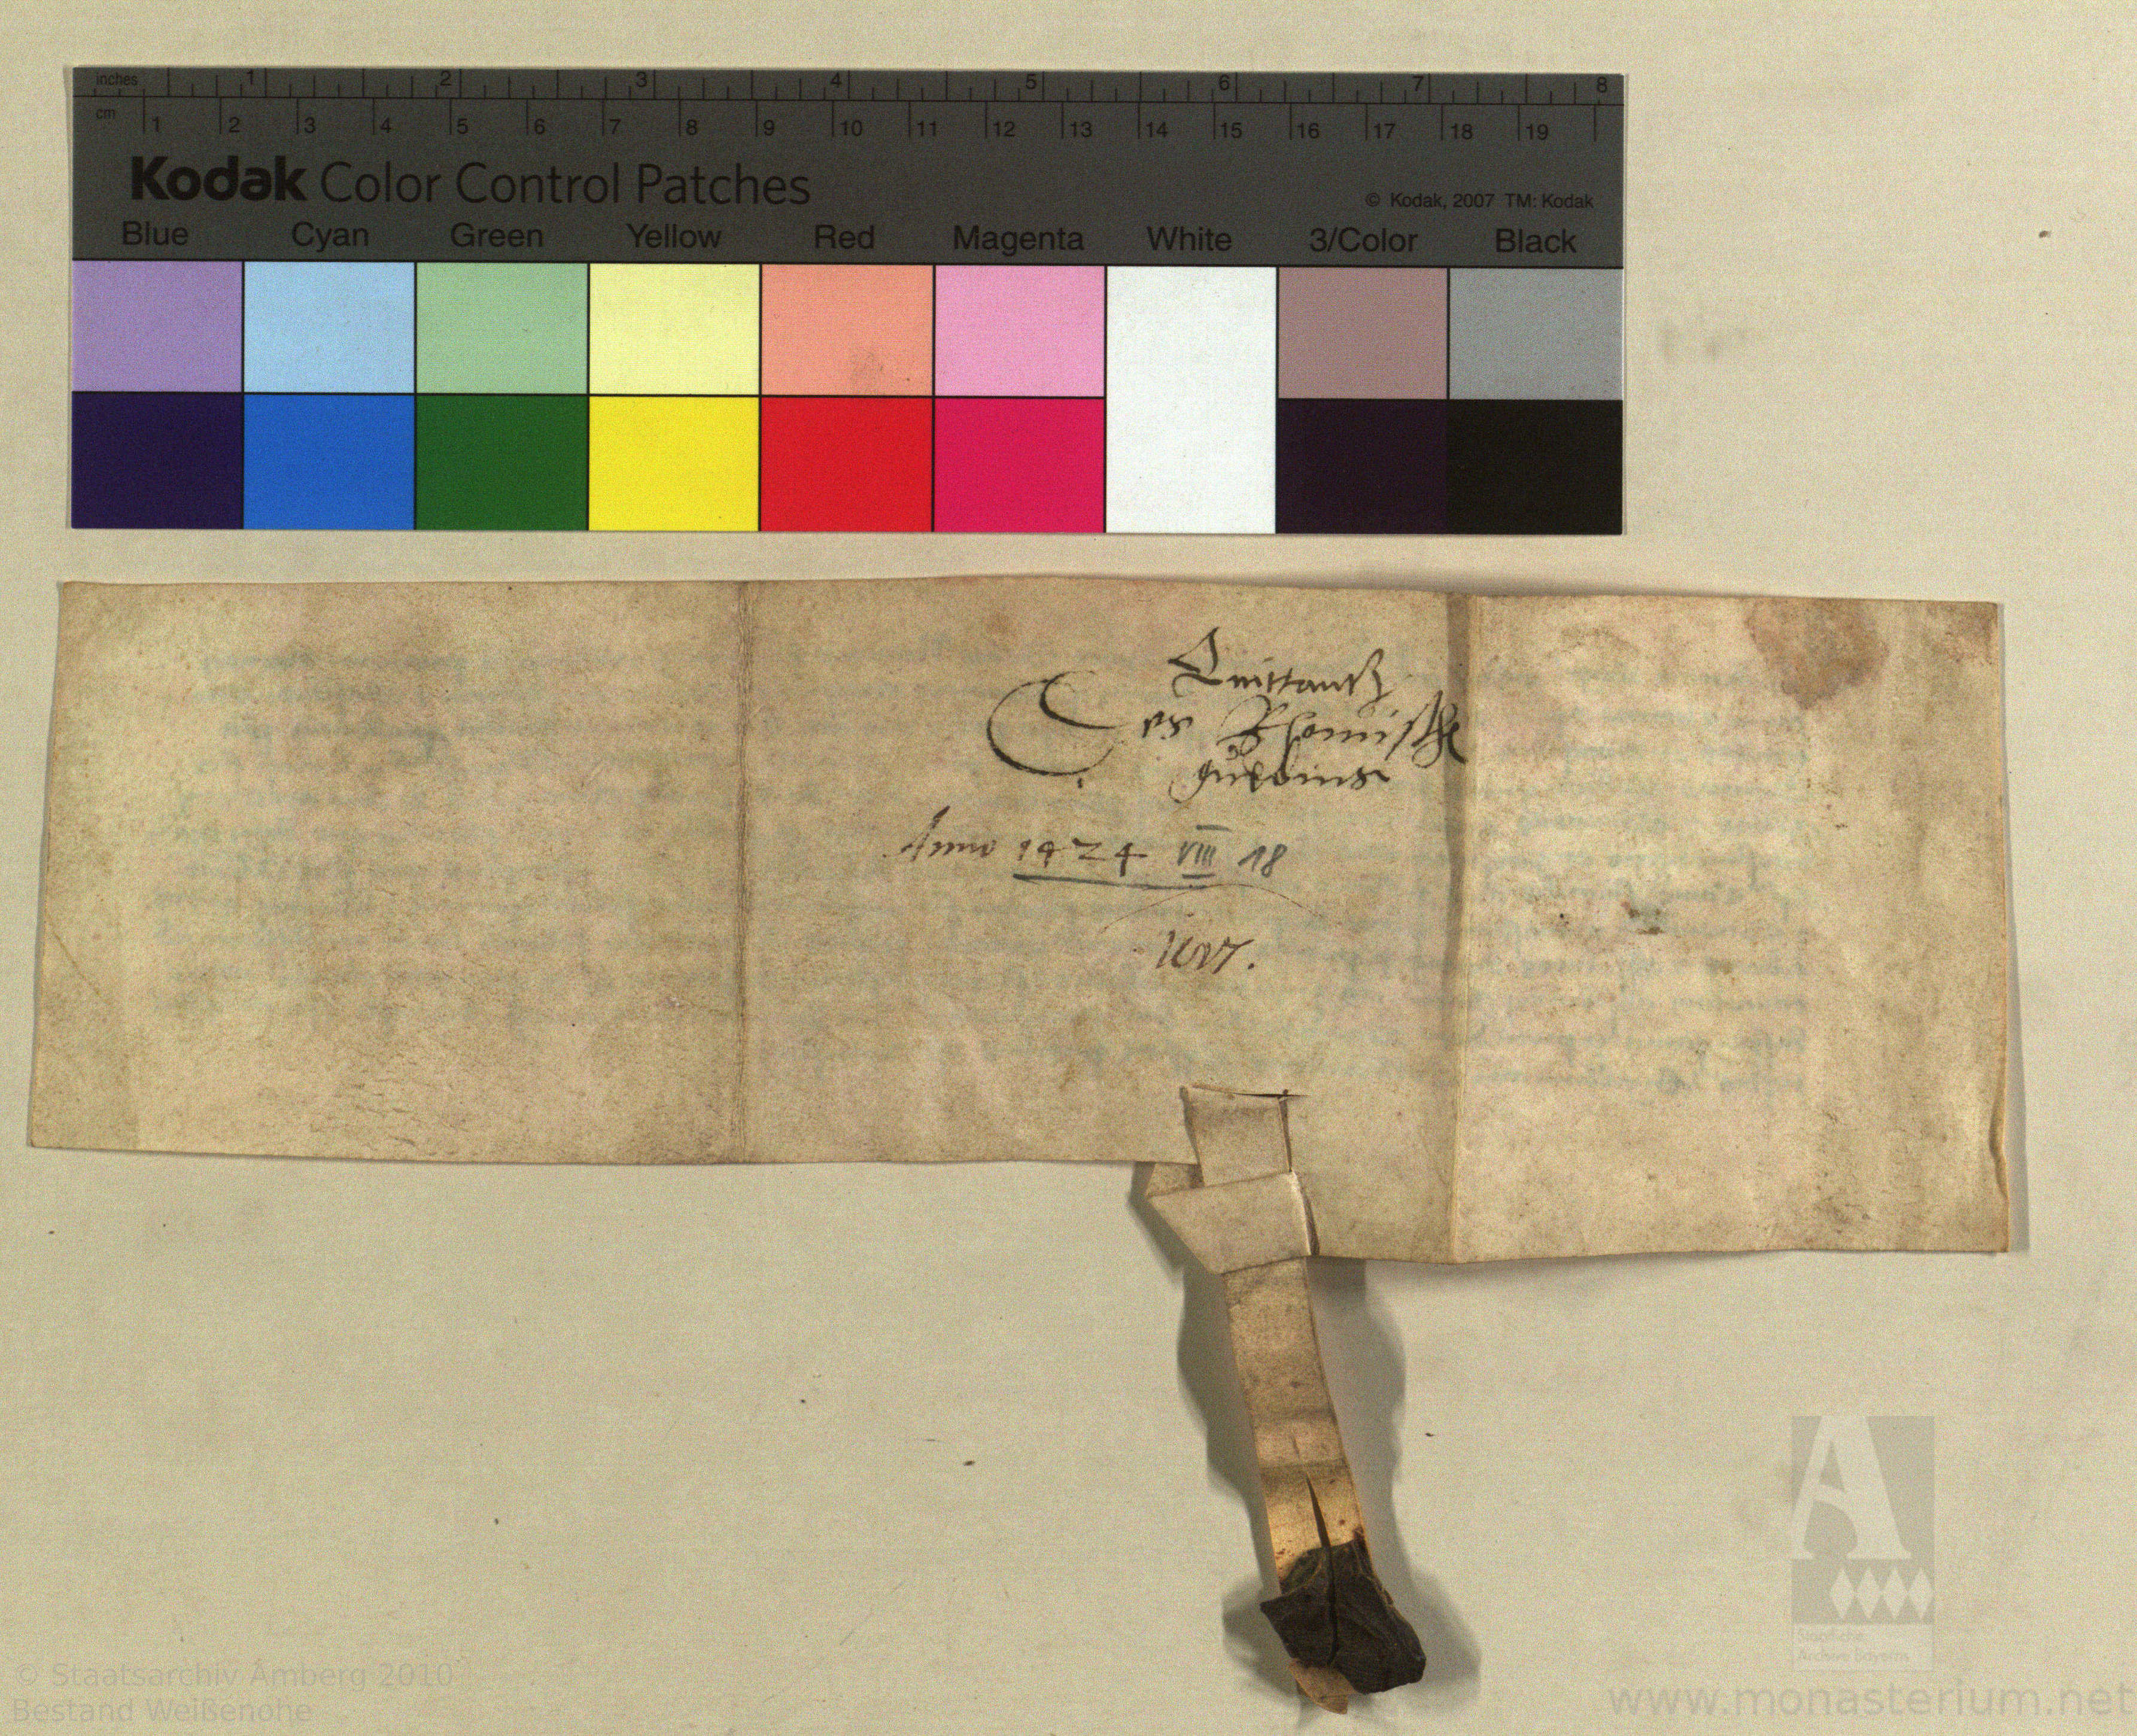 inches 1 2 3 4 5 6 7 8
cm 1 2 3 4 5 6 7 8 9 10 11 12 13 14 15 16 17 18 19
Kodak Color Control Patches
© Kodak, 2007 TM: Kodak
Blue Cyan Green Yellow Red Magenta White 3/Color Black
Quittantz
es Rhomische
guldins
Anno 1424 VIII 18
© Staatsarchiv Amberg 2010
Bestand Weißenohe
Staatliche
Archive Bayerns
www.monasterium.net